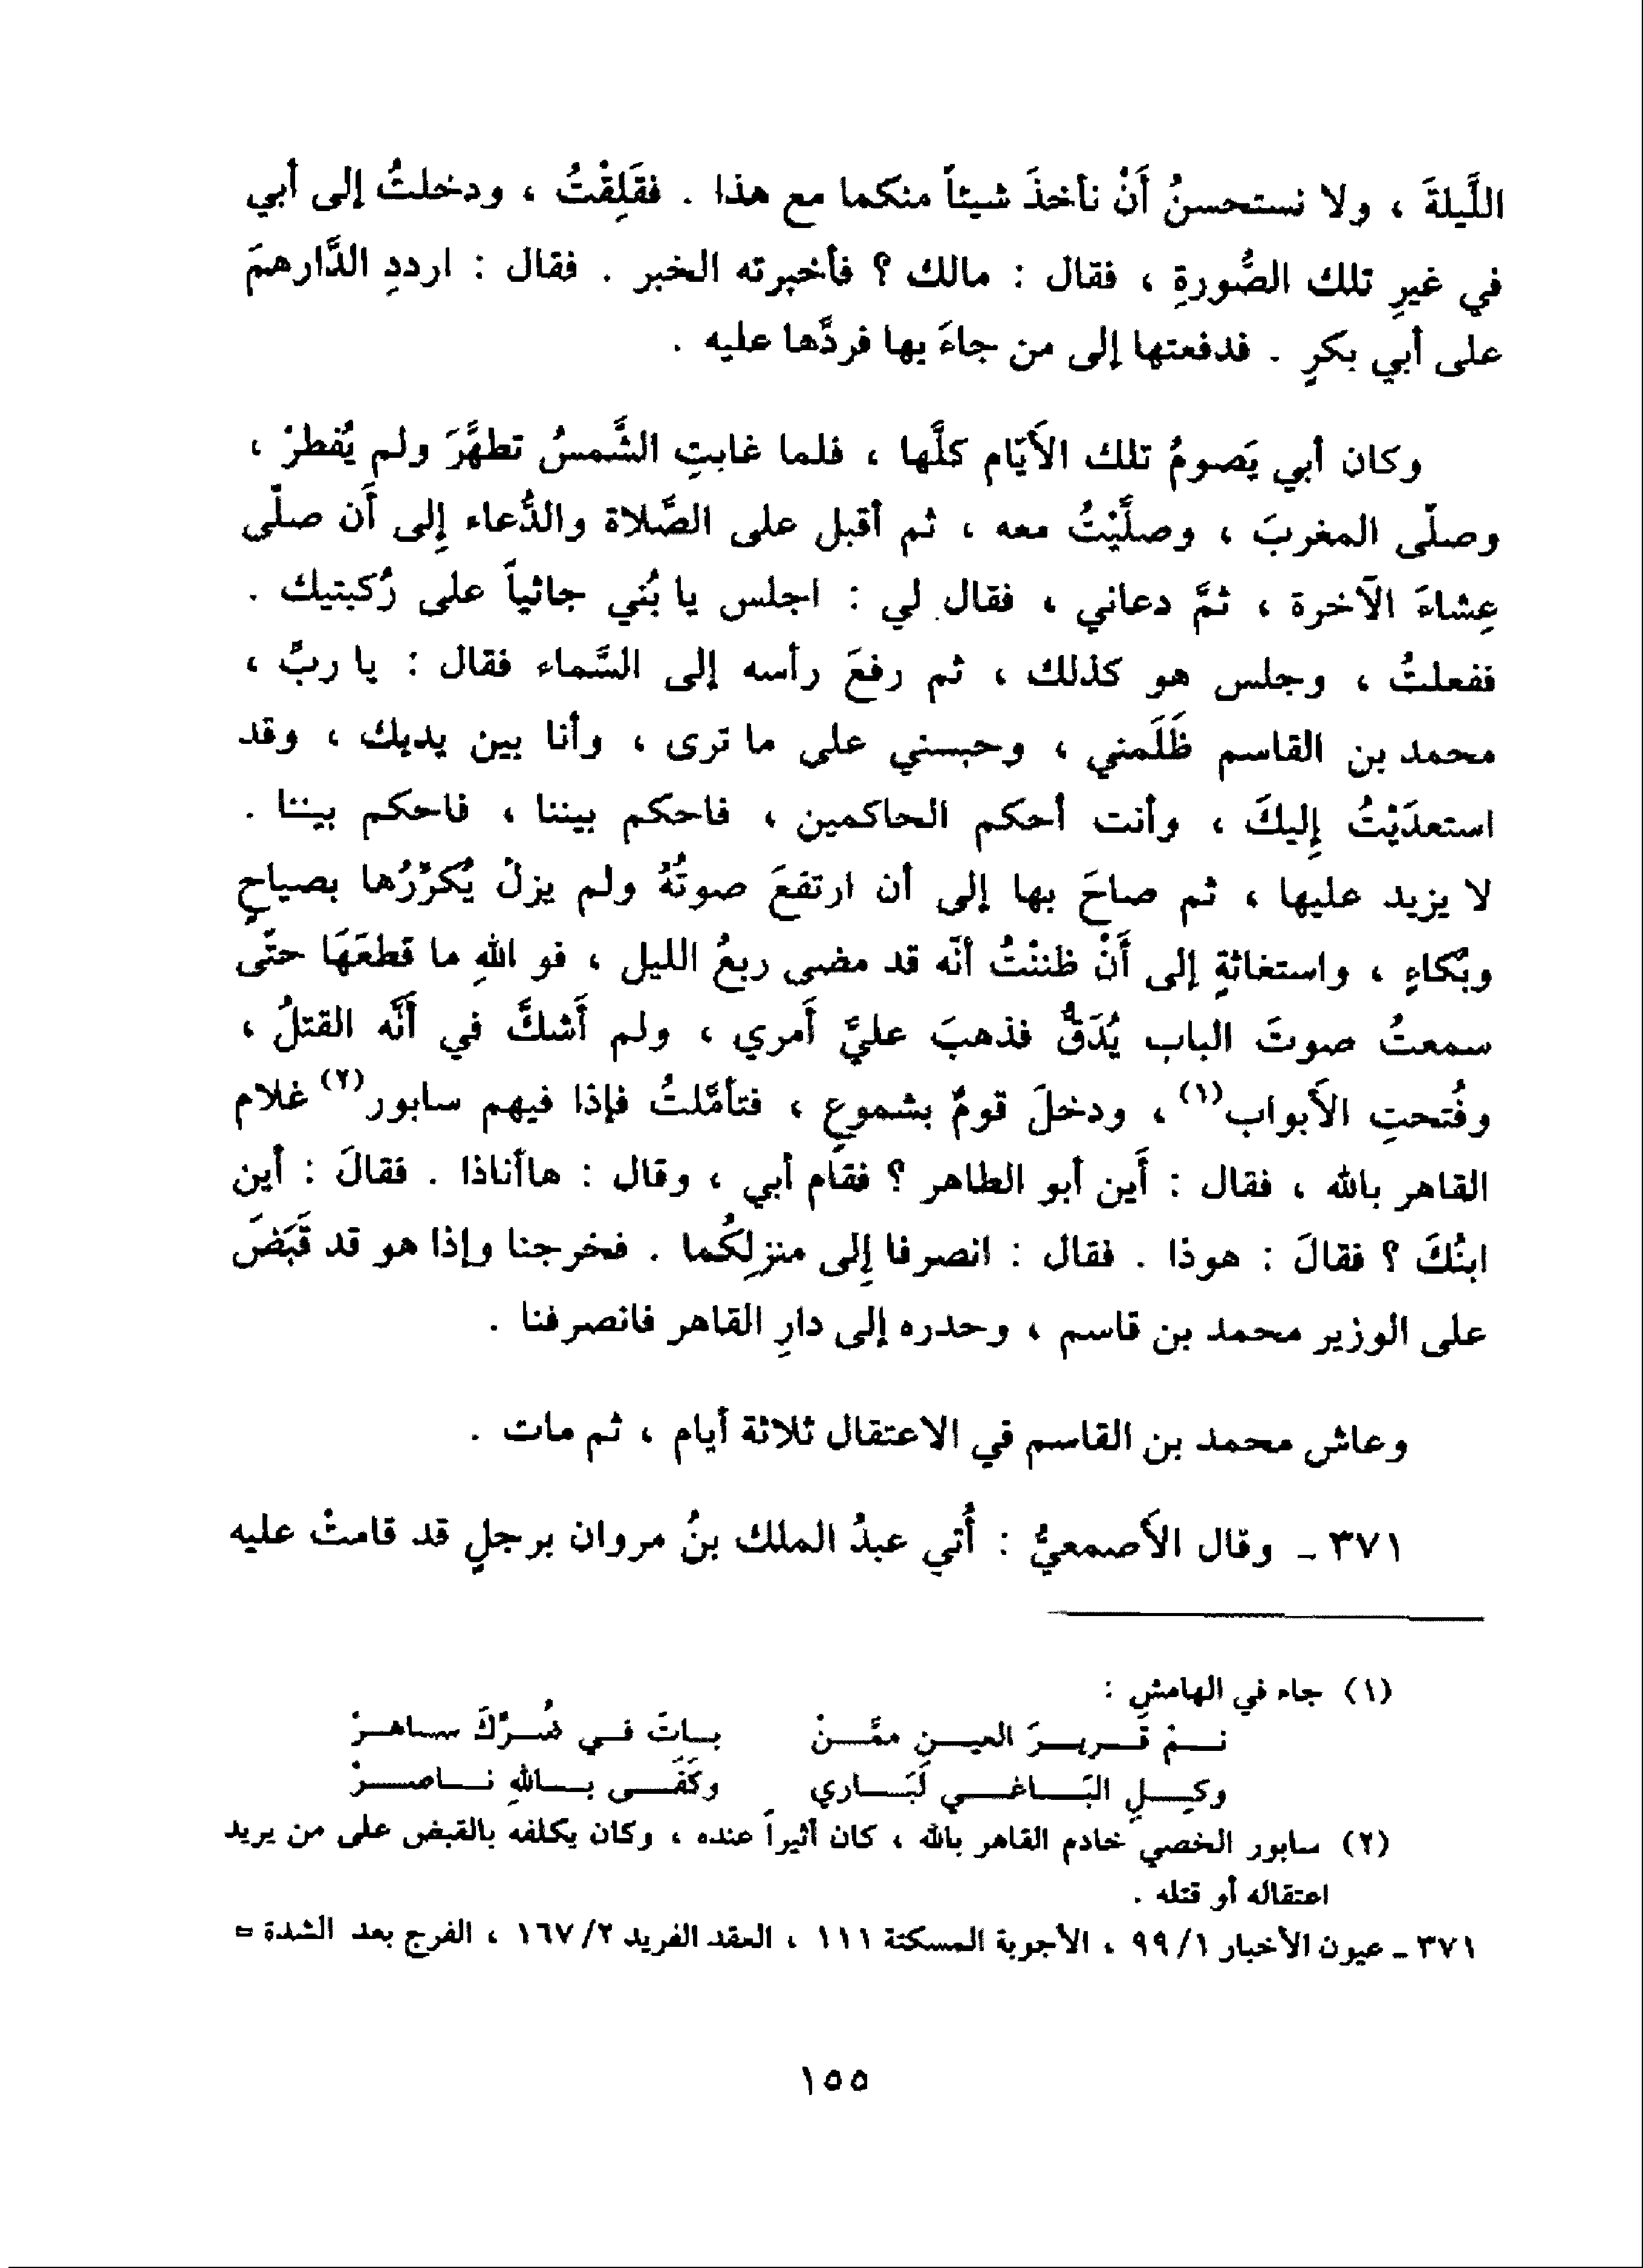 اللَّيلةَ ، ولا نستحسنُ أَنْ نأخذَ شيئاً منكما مع هذا . فقَلِقْتُ ، ودخلتُ إلى أبي
في غيرِ تلك الصُّورةِ ، فقال : مالك ؟ فأخبرته الخبر . فقال : ارددِ الدَّارهمَ
على أبي بكرٍ . فدفعتها إلى من جاءَ بها فردَّها عليه .
وكان أبي يَصومُ تلك الأَيّام كلَّها ، فلما غابتِ الشَّمسُ تطهَّرَ ولم يُفطرْ ،
وصلّى المغربَ ، وصلَّيْتُ معه ، ثم أقبل على الصَّلاة والدُّعاء إِلى أَن صلّى
عِشاءَ الآخرة ، ثمَّ دعاني ، فقال لي : اجلس يا بُني جاثياً على رُكبتيك .
ففعلتُ ، وجلس هو كذلك ، ثم رفعَ رأسه إلى السَّماء فقال : يا ربِّ ،
محمد بن القاسم ظَلَمني ، وحبسني على ما ترى ، وأنا بين يديك ، وقد
استعدَيْتُ إِليكَ ، وأنت أحكم الحاكمين ، فاحكم بيننا ، فاحكم بيننا .
لا يزيد عليها ، ثم صاحَ بها إلى أن ارتفعَ صوتُهُ ولم يزلْ يُكرِّرُها بصياحٍ
وبُكاءٍ ، واستغاثةٍ إلى أَنْ ظننْتُ أنّه قد مضى ربعُ الليل ، فو اللهِ ما قطعَهَا حتّى
سمعتُ صوتَ الباب يُدَقُّ فذهبَ عليَّ أَمري ، ولم أَشكَّ في أَنَّه القتلُ ،
وفُتحتِ الأَبواب(١) ، ودخلَ قومٌ بشموعٍ ، فتأمَّلتُ فإذا فيهم سابور(٢) غلام
القاهر بالله ، فقال : أَين أبو الطاهر ؟ فقام أبي ، وقال : هاأناذا . فقالَ : أين
ابنُكَ ؟ فقالَ : هوذا . فقال : انصرفا إِلى منزلِكُما . فخرجنا وإذا هو قد قَبَضَ
على الوزير محمد بن قاسم ، وحدره إلى دارِ القاهر فانصرفنا .
وعاش محمد بن القاسم في الاعتقال ثلاثة أيام ، ثم مات .
٣٧١ ـ وقال الأَصمعيُّ : أُتي عبدُ الملك بنُ مروان برجلٍ قد قامتْ عليه
(١) جاء في الهامش :
نـم قـريـرَ العيـنِ ممَّـنْ بـاتَ فـي ضُـرِّكَ سـاهـرْ
وكِـلِ البَـاغـي لَبَـاري وكَفَـى بـاللهِ نـاصـرْ
(٢) سابور الخصي خادم القاهر بالله ، كان أثيراً عنده ، وكان يكلفه بالقبض على من يريد
اعتقاله أو قتله .
٣٧١ ـ عيون الأخبار ٩٩/١ ، الأجوبة المسكتة ١١١ ، العقد الفريد ١٦٧/٢ ، الفرج بعد الشدة =
١٥٥